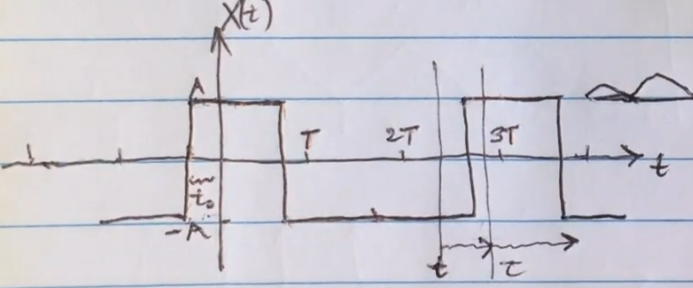 X(t)
A
T 2T 3T
t
t₀
-A
t τ